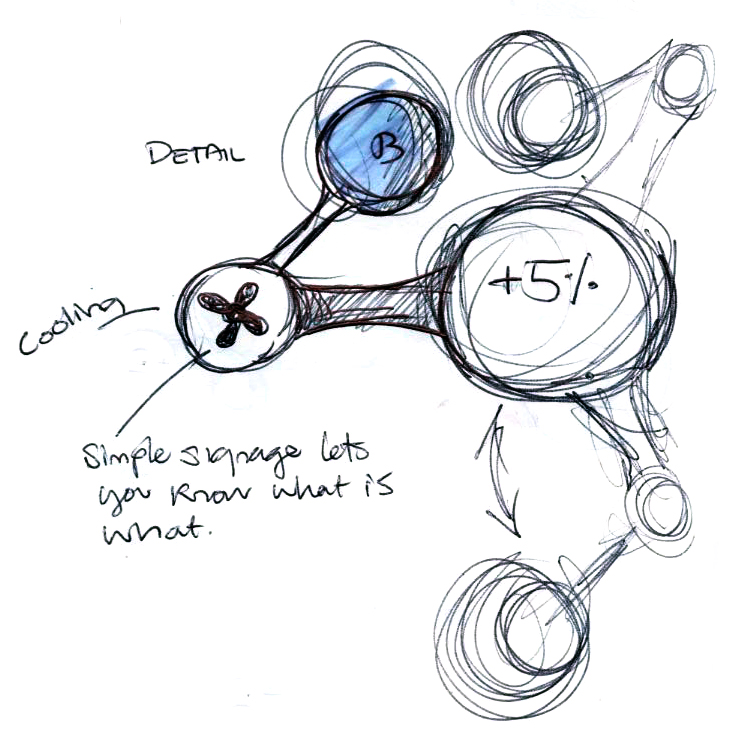 DETAIL
B
+5%
Cooling
Simple signage lets
you know what is
what.